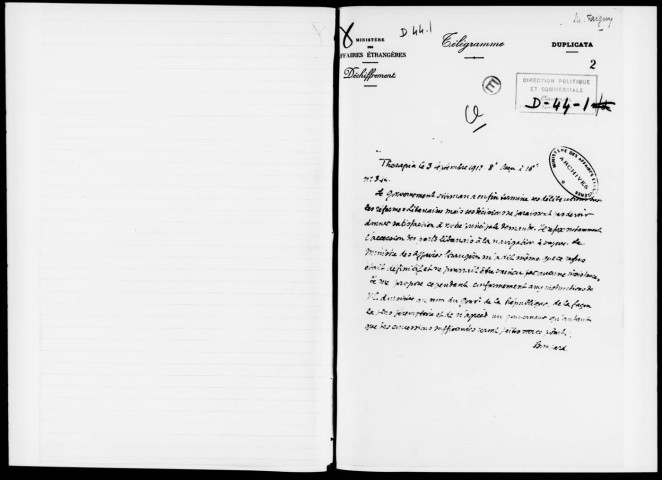 D 44.1
MINISTÈRE
DES
AFFAIRES ÉTRANGÈRES
Déchiffrement
Télégramme
DUPLICATA
2
E
DIRECTION POLITIQUE
ET COMMERCIALE
D-44-1
MINISTÈRE DES AFFAIRES ÉTRANGÈRES
ARCHIVES
Thérapia le 3 1912 reçu à 16h
Le Gouvernement ottoman a enfin terminé ses délibérations sur
les réformes libanaises mais ses décisions ne paraissent pas devoir
donner satisfaction à notre principale demande. Il refuse notamment
l'accession des ports libanais à la navigation à vapeur. Le
Ministre des Affaires Étrangères m'a dit même que ce refus
était définitif et ne pourrait être par aucune
Je me propose cependant conformément aux instructions de
V.E. d'insister au nom du Gouvt de la République de la façon
la plus et de n'agréer un gouverneur qu'autant
que des concessions seront faites sur ce point.
Bompard